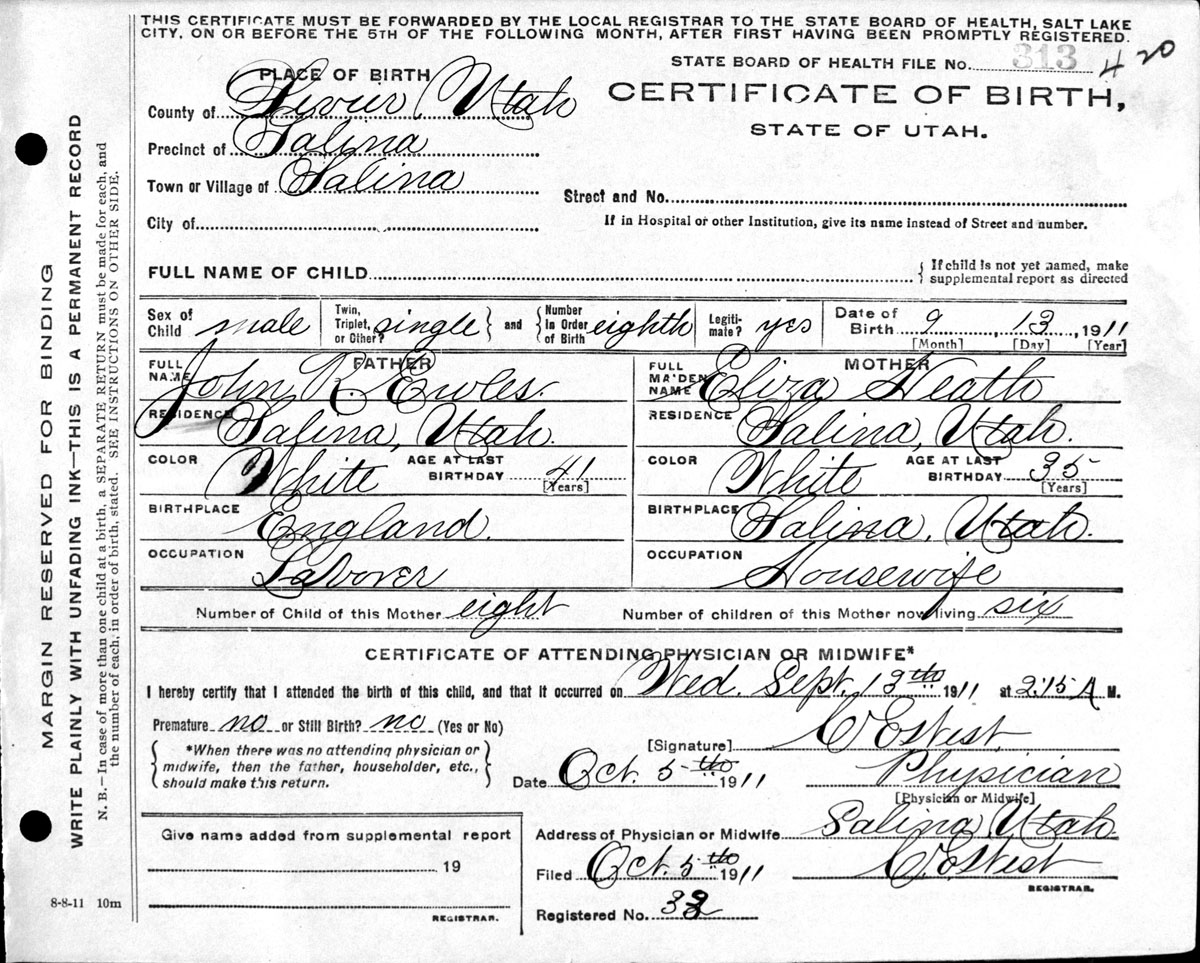 THIS CERTIFICATE MUST BE FORWARDED BY THE LOCAL REGISTRAR TO THE STATE BOARD OF HEALTH, SALT LAKE
CITY, ON OR BEFORE THE 5TH OF THE FOLLOWING MONTH, AFTER FIRST HAVING BEEN PROMPTLY REGISTERED.
STATE BOARD OF HEALTH FILE NO. 313 420
PLACE OF BIRTH
CERTIFICATE OF BIRTH,
STATE OF UTAH.
County of Sevier, Utah
Precinct of Salina
Town or Village of Salina
Street and No.
City of
If in Hospital or other Institution, give its name instead of Street and number.
FULL NAME OF CHILD
If child is not yet named, make
supplemental report as directed
Sex of Child male Twin, Triplet, or Other? single and Number In Order of Birth eighth Legiti-mate? yes Date of Birth 9, 13, 1911
[Month] [Day] [Year]
FATHER MOTHER
FULL NAME John R. Ewles. FULL MAIDEN NAME Eliza Heath
RESIDENCE Salina, Utah. RESIDENCE Salina, Utah.
COLOR White AGE AT LAST BIRTHDAY 41 [Years] COLOR White AGE AT LAST BIRTHDAY 35 [Years]
BIRTHPLACE England. BIRTHPLACE Salina, Utah.
OCCUPATION Laborer OCCUPATION Housewife
Number of Child of this Mother eight Number of children of this Mother now living six
CERTIFICATE OF ATTENDING PHYSICIAN OR MIDWIFE*
I hereby certify that I attended the birth of this child, and that it occurred on Wed. Sept. 13th 1911 at 2:15 A M.
Premature no or Still Birth? no (Yes or No)
*When there was no attending physician or
midwife, then the father, householder, etc.,
should make this return.
[Signature] C E West
Date Oct. 5th 1911 Physician
[Physician or Midwife]
Give name added from supplemental report
19
REGISTRAR.
Address of Physician or Midwife Salina, Utah
Filed Oct. 5th 1911 C. E. West
REGISTRAR.
Registered No.
8-8-11 10m
MARGIN RESERVED FOR BINDING
WRITE PLAINLY WITH UNFADING INK—THIS IS A PERMANENT RECORD
N. B.—In case of more than one child at a birth, a SEPARATE RETURN must be made for each, and
the number of each, in order of birth, stated. SEE INSTRUCTIONS ON OTHER SIDE.